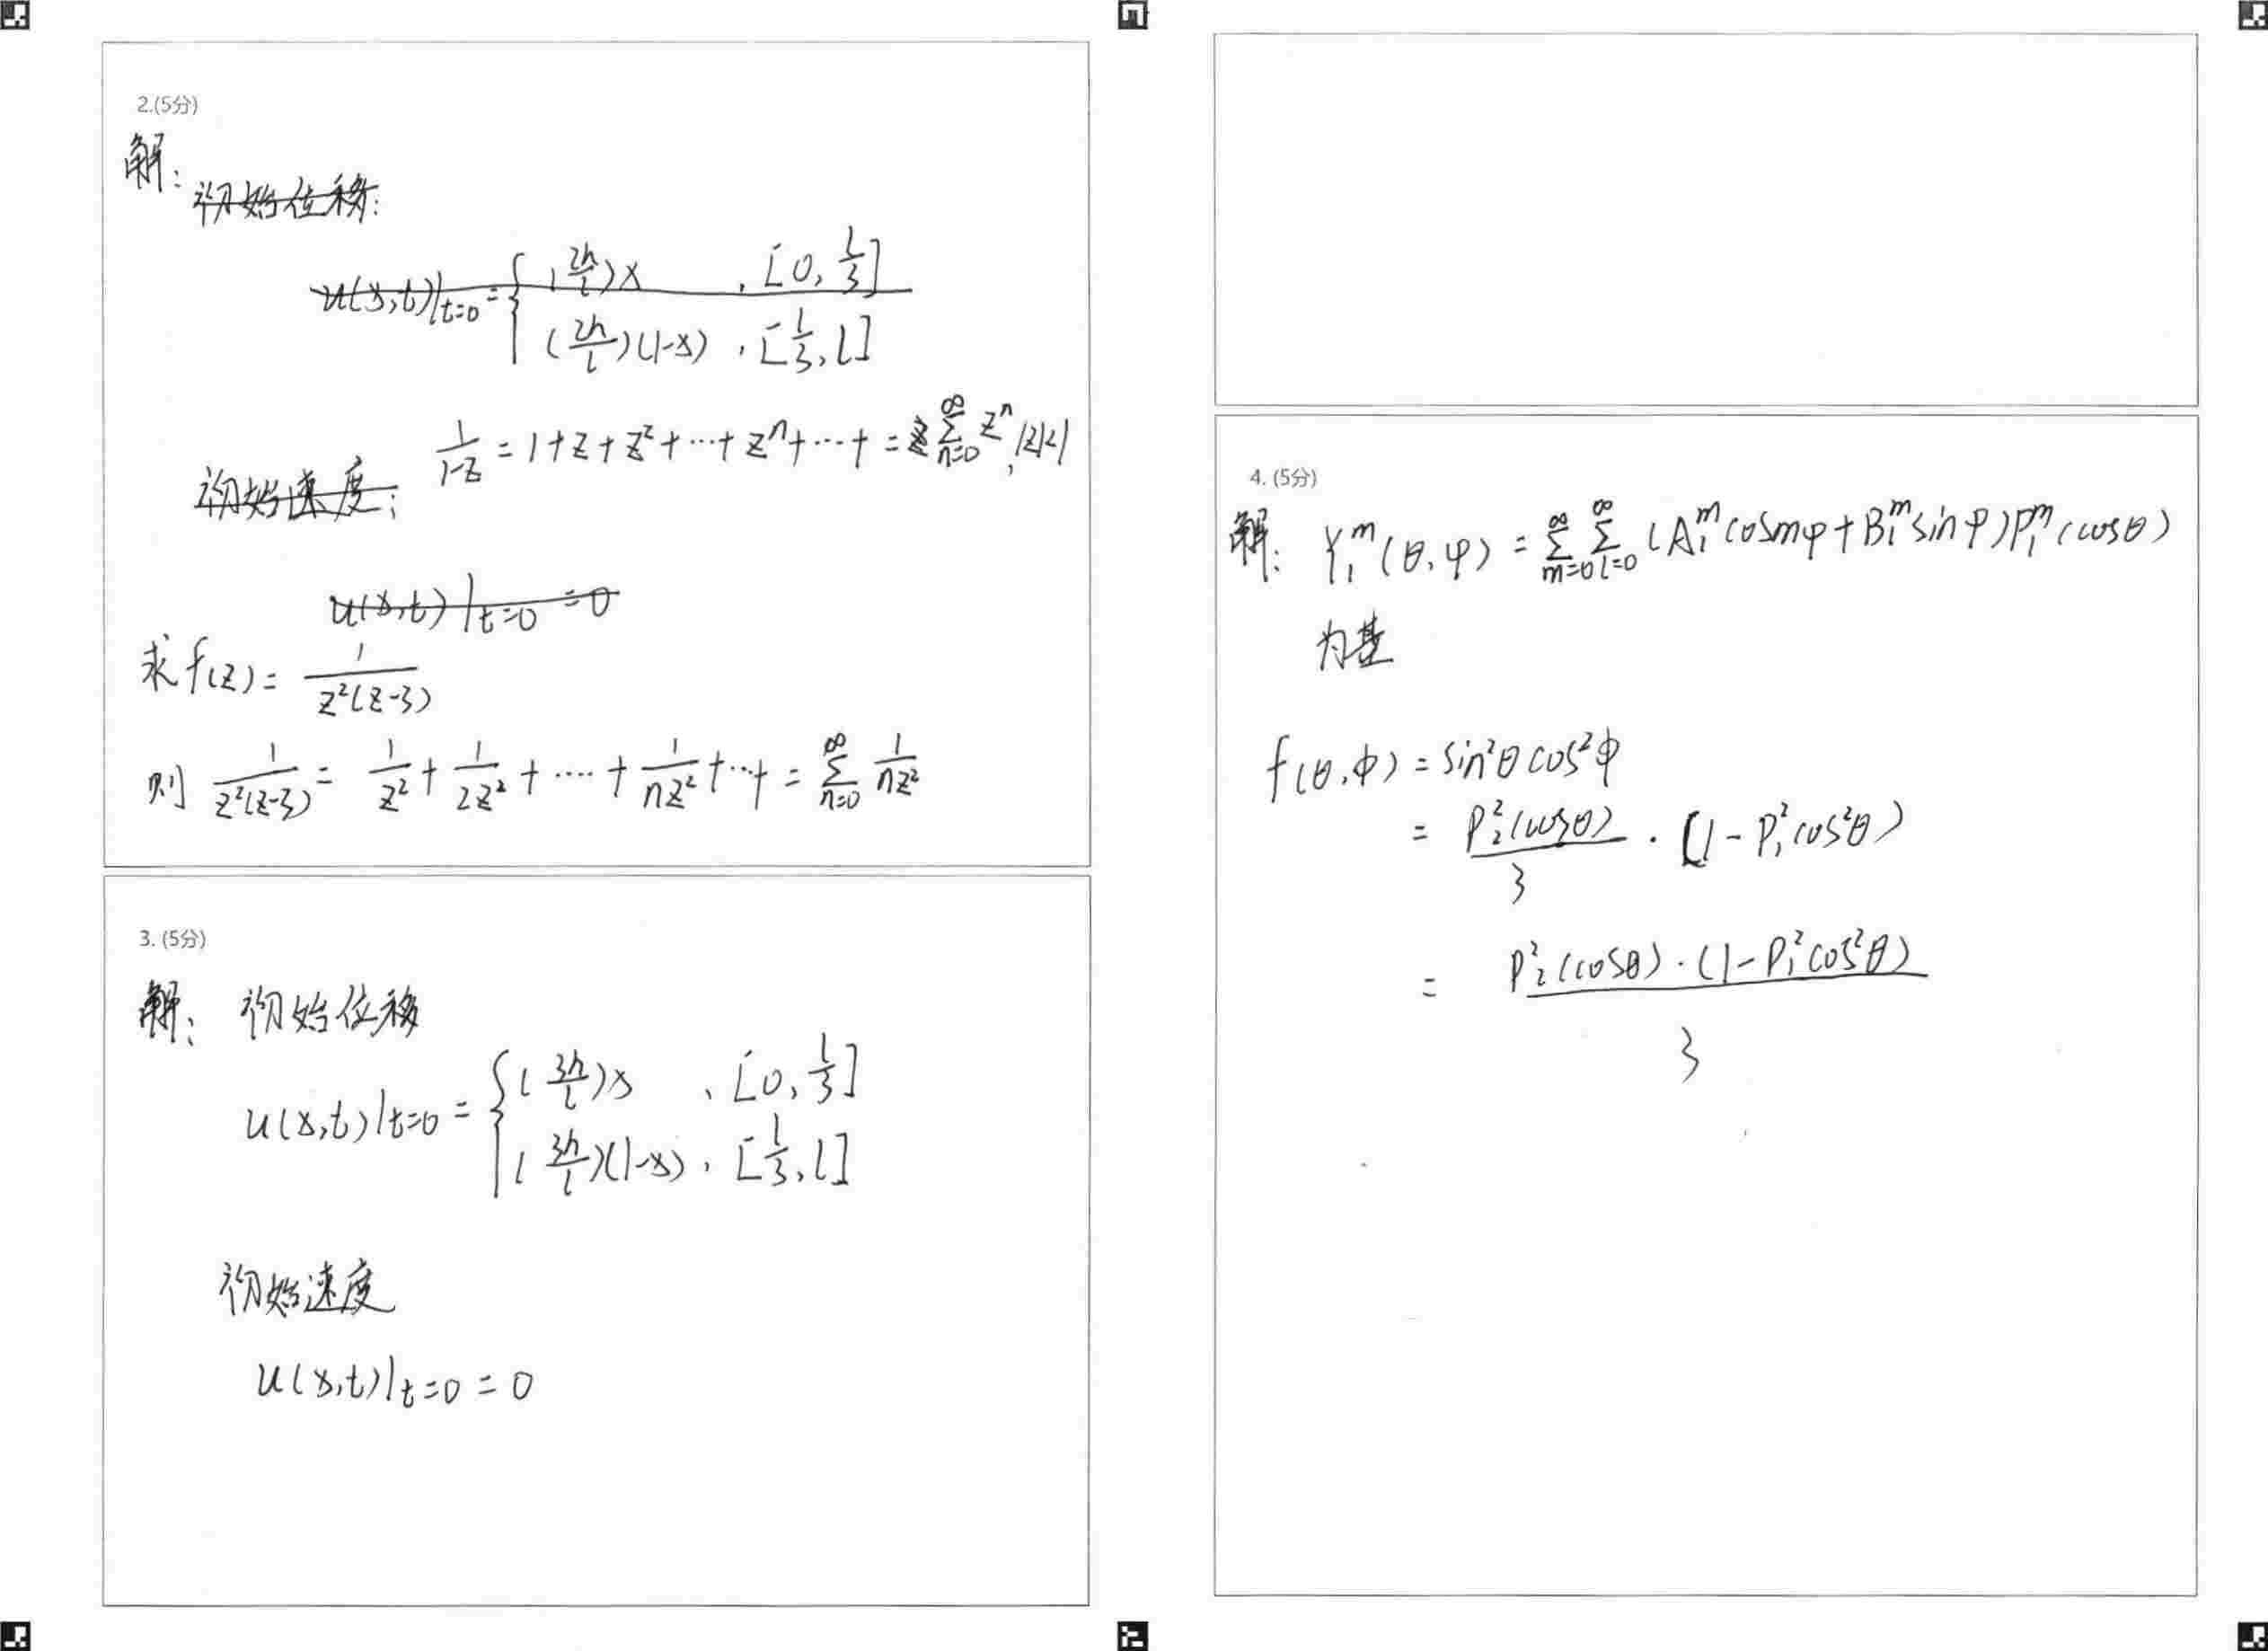 2.(5分)
解:
初始位移:
u(x,t)|t=0 = { (2h/l)x , [0, l/3]
(2h/l)(l-x) , [l/3, l]
1/(1-z) = 1+z+z²+⋯+zⁿ+⋯+ = ∑_{n=0}^{∞} zⁿ, |z|<1
初始速度:
u(x,t)|t=0 = 0
求 f(z) = 1/(z²(z-3))
则 1/(z²(z-3)) = 1/z² + 1/(2z²) + ⋯⋅ + 1/(nz²) + ⋯+ = ∑_{n=0}^{∞} 1/(nz²)
3. (5分)
解: 初始位移
u(x,t)|t=0 = { (3h/l)x 、[0, l/3]
(3h/l)(l-x) , [l/3, l]
初始速度
u(x,t)|t=0 = 0
4. (5分)
解: Y_l^m(θ,φ) = ∑_{m=0}^{∞} ∑_{l=0}^{∞} (A_l^m cosmφ + B_l^m sinφ)P_l^m(cosθ)
为基
f(θ,ϕ) = sin²θcos²ϕ
= P₂²(cosθ)/3 · (1-P₁²cos²θ)
= P₂²(cosθ)·(1-P₁²cos²θ)/3